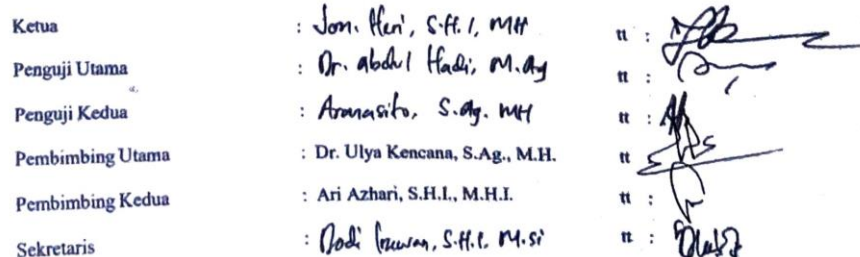 Ketua : Jon. Heri, S.H.I, MH tt :
Penguji Utama : Dr. abdul Hadi, M.Ag tt :
Penguji Kedua : Armasito, S.Ag. MH tt :
Pembimbing Utama : Dr. Ulya Kencana, S.Ag., M.H. tt
Pembimbing Kedua : Ari Azhari, S.H.I., M.H.I. tt :
Sekretaris : Dodi Irawan, S.H.I, M.si tt :